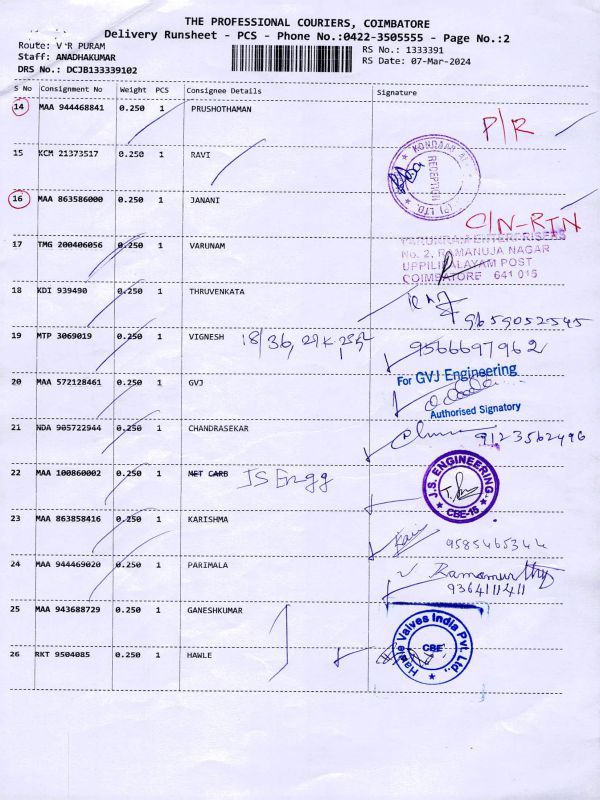 THE PROFESSIONAL COURIERS, COIMBATORE
Delivery Runsheet - PCS - Phone No.:0422-3505555 - Page No.:2
Route: V R PURAM
RS No.: 1333391
Staff: ANADHAKUMAR
RS Date: 07-Mar-2024
DRS No.: DCJB133339102
S No Consignment No Weight PCS Consignee Details Signature
14 MAA 944468841 0.250 1 PRUSHOTHAMAN P/R
15 KCM 21373517 0.250 1 RAVI
RECEPTION
(P) LTD.
16 MAA 863586000 0.250 1 JANANI C/N-RTN
17 TMG 200406056 0.250 1 VARUNAM
ENTERPRISERS
No. 2, RAMANUJA NAGAR
UPPILIPALAYAM POST
COIMBATORE 641 015
18 KDI 939490 0.250 1 THRUVENKATA 9659052545
19 MTP 3069019 0.250 1 VIGNESH 18/36, 9566697962
20 MAA 572128461 0.250 1 GVJ
For GVJ Engineering
Authorised Signatory
21 NDA 905722944 0.250 1 CHANDRASEKAR 9123562496
22 MAA 100860002 0.250 1 MET CARB JS Engg
J.S. ENGINEERING
CBE-15
23 MAA 863858416 0.250 1 KARISHMA 9585465344
24 MAA 944469020 0.250 1 PARIMALA Ramamurthy
9364111411
25 MAA 943688729 0.250 1 GANESHKUMAR
26 RKT 9504085 0.250 1 HAWLE
Hawle Valves India Pvt. Ltd.,
CBE